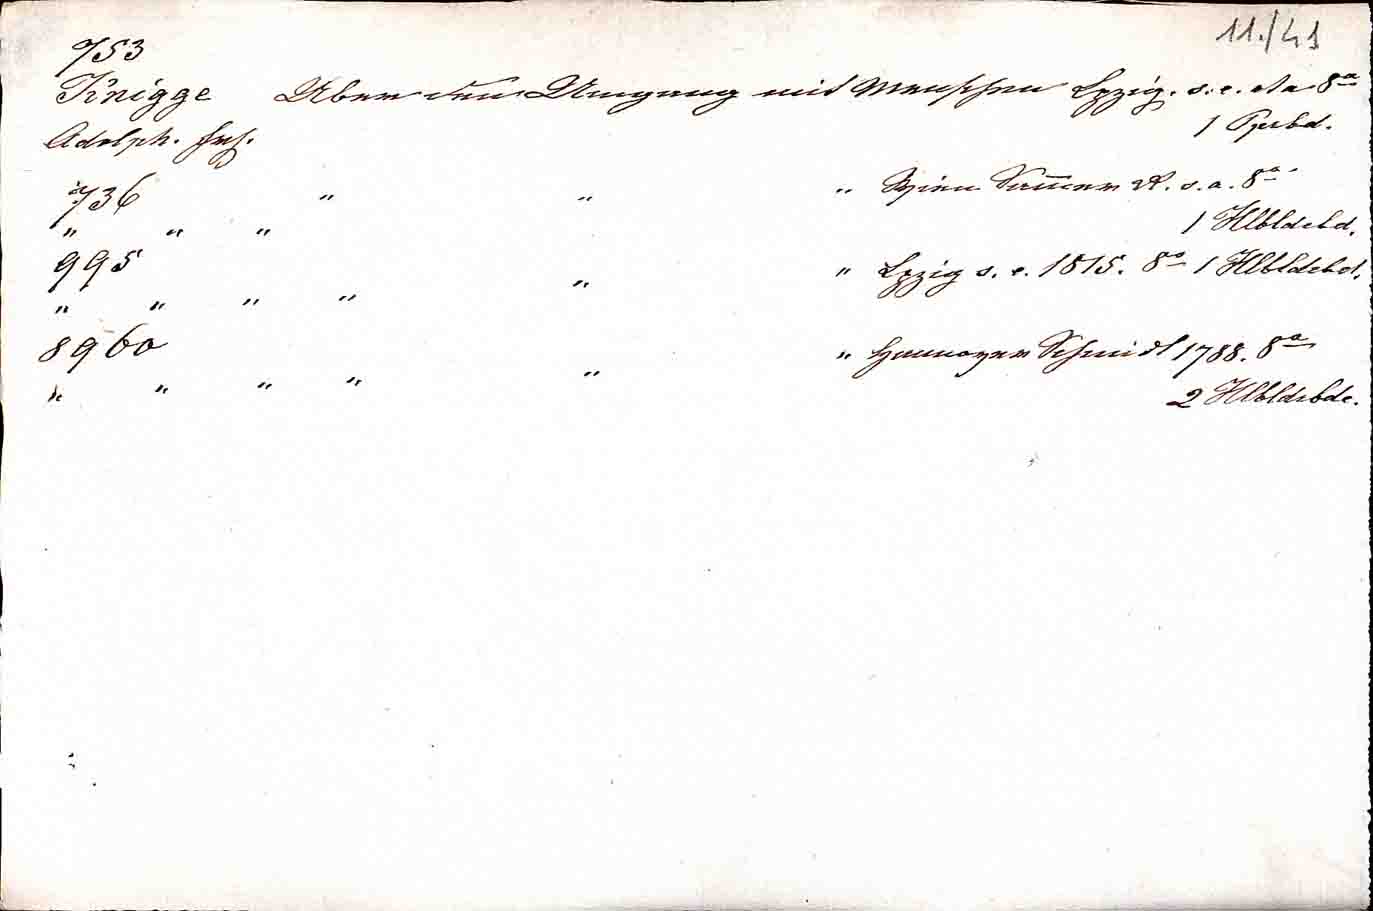 11./41
753
Knigge Über den Umgang mit Menschen Lpzig. s. e. et a 8°
Adolph. Frh. 1 Ppbd.
736 " " " Wien Bauer s. a. 8°
" " " 1 Hlbldrbd.
995 " " Lpzig s. e. 1815. 8° 1 Hlbldrbd.
" " " "
8960 " Hannover Schmidt 1788. 8°
" " " " " 2 Hlbldrbde.